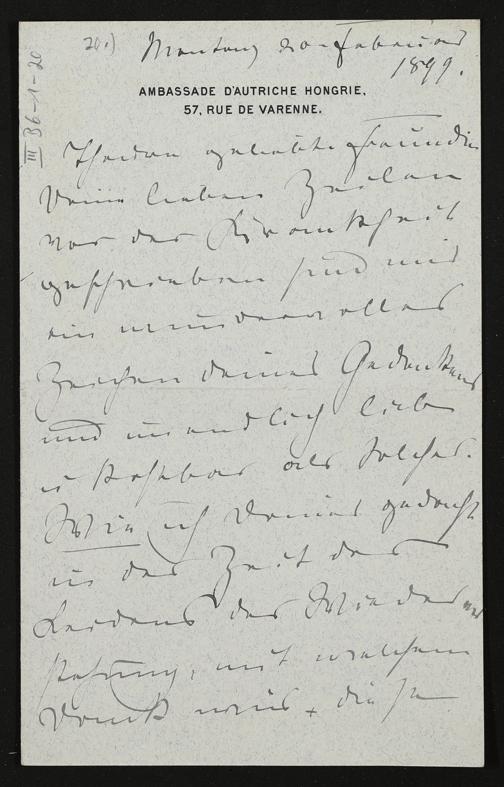 20.)
Montag 20 Februar
1899.
III B6-1-20
AMBASSADE D'AUTRICHE HONGRIE,
57, RUE DE VARENNE.
Theure geliebte Freundin
Deine lieben Zeilen
vor der Krankheit
geschrieben sind mir
ein wundervolles
Zeichen deines Gedenkens
und unendlich lieb
u kostbar als solches.
Wie ich Deiner gedacht
in der Zeit des
Leidens der Wieder
stehung, mit welchem
Dank